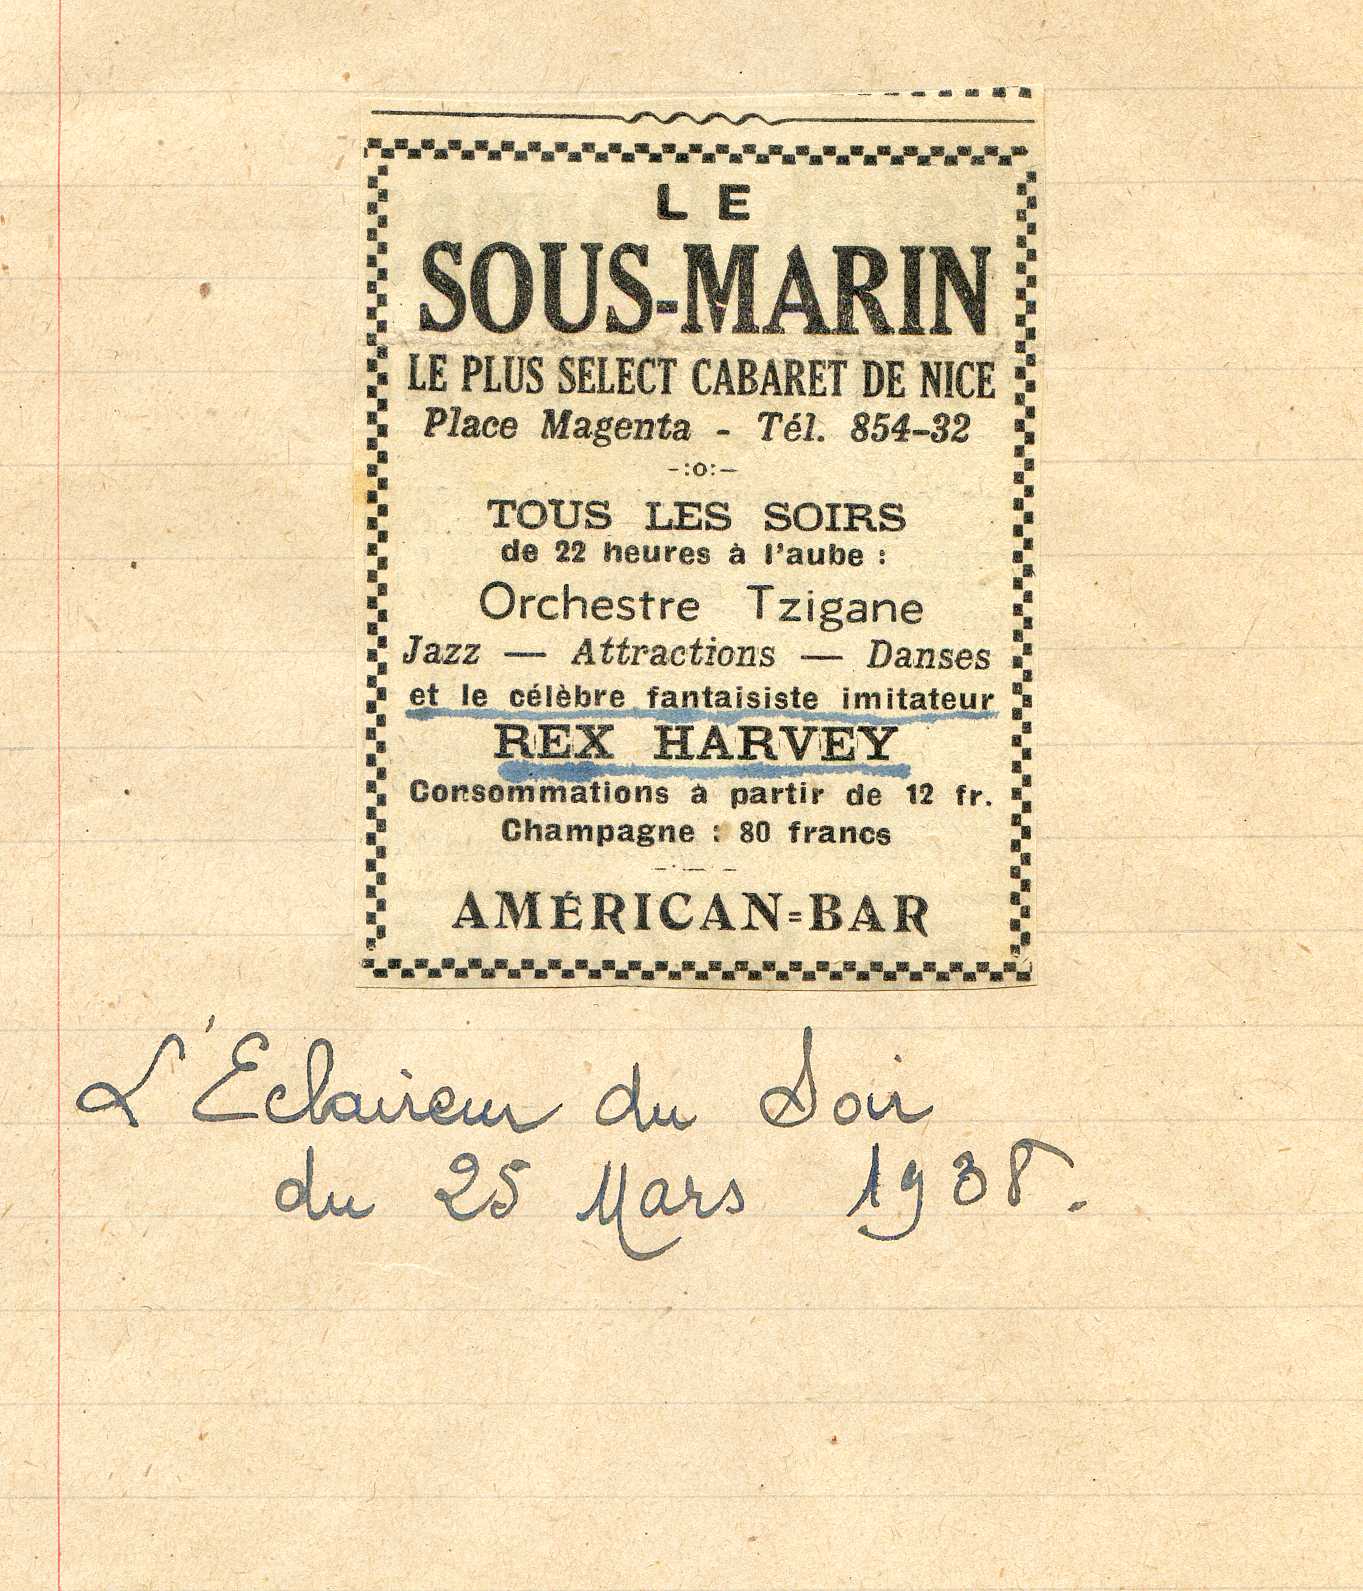 LE
SOUS-MARIN
LE PLUS SELECT CABARET DE NICE
Place Magenta - Tél. 854-32
-:o:-
TOUS LES SOIRS
de 22 heures à l'aube :
Orchestre Tzigane
Jazz — Attractions — Danses
et le célèbre fantaisiste imitateur
REX HARVEY
Consommations à partir de 12 fr.
Champagne : 80 francs
AMÉRICAN-BAR
L'Eclaireur du Soir
du 25 Mars 1938.